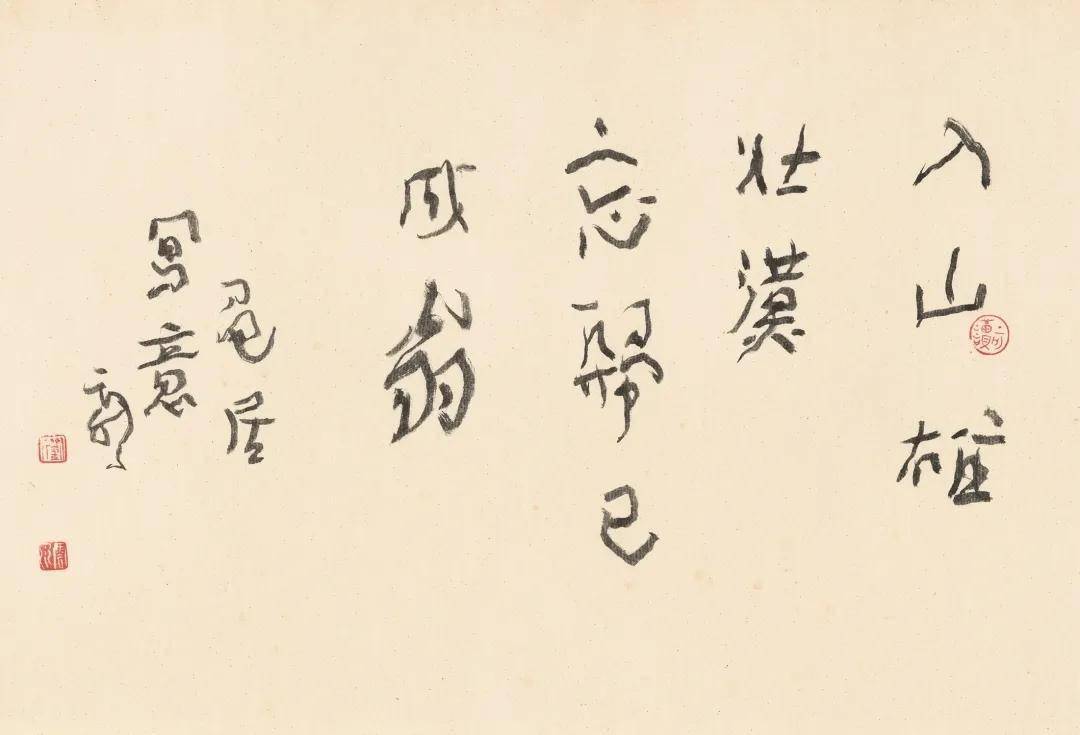 入山雄
壮漢
忘歸已
成翁
居
寫意